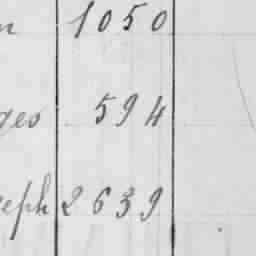 n 1050
ges 594
seph 2639